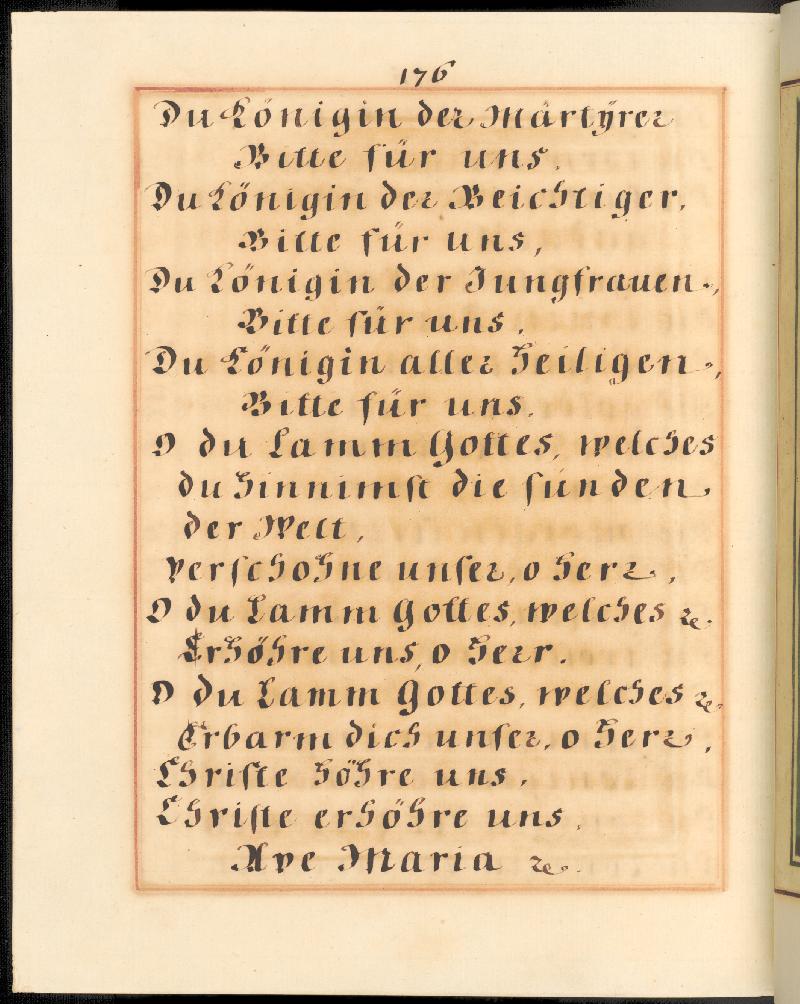 176
Du Königin der Märtÿrer
Bitte für uns.
Du Königin der Beichtiger,
Bitte für uns,
Du Königin der Jungfrauen,
Bitte für uns,
Du Königin aller Heiligen,
Bitte für uns.
O du Lamm Gottes, welches
du hinnimst die sünden
der Welt,
verschohne unser, o Herr,
O du Lamm Gottes, welches ꝛc.
Erhöhre uns, o Herr.
O du Lamm Gottes, welches ꝛc.
Erbarm dich unser, o Herr,
Christe höhre uns,
Christe erhöhre uns,
Ave Maria ꝛc.